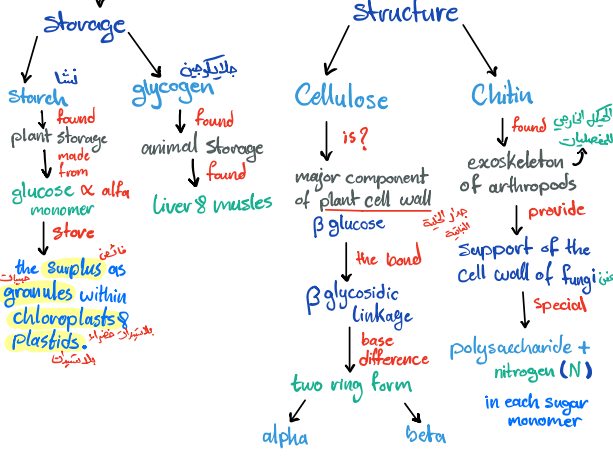 Storage
نشا
starch
found
plant storage
made
from
glucose ∝ alfa
monomer
store
فائض
the surplus as
حبيبات
granules within
chloroplasts &
plastids.
بلاستيدات خضراء
بلاستيدات
جلايكوجين
glycogen
found
animal storage
found
liver & musles
structure
Cellulose
is?
major component
of plant cell wall
جدار الخلية
النباتية
β glucose
the bond
β glycosidic
linkage
base
difference
two ring form
alpha
beta
Chitin
found
الهيكل الخارجي
للمفصليات
exoskeleton
of arthropods
provide
support of the
cell wall of fungi
special
polysaccharide +
nitrogen (N)
in each sugar
monomer